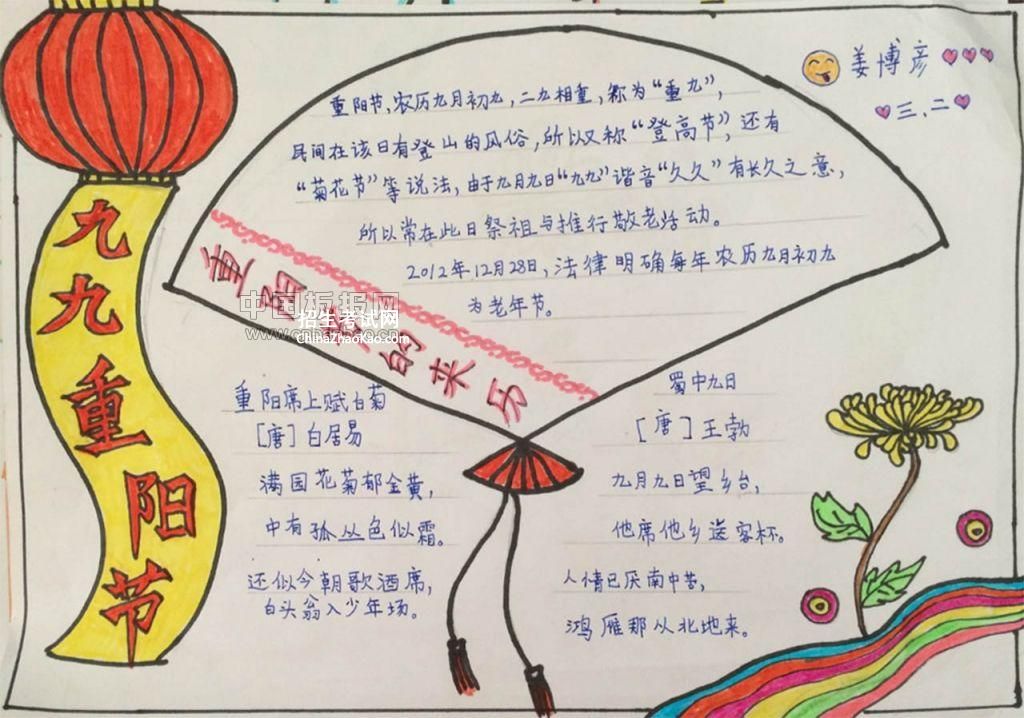 九九重阳节
姜博彦
三.二
重阳节,农历九月初九,二九相重,称为“重九”,
民间在该日有登山的风俗,所以又称“登高节”,还有
“菊花节”等说法,由于九月九日“九九”谐音“久久”有长久之意,
所以常在此日祭祖与推行敬老活动。
2012年12月28日,法律明确每年农历九月初九
为老年节。
重阳节的来历
中国板报网
www.cnbanbao.cn
招生考试网
ChinaZhaoKao.com
重阳席上赋白菊
[唐]白居易
满园花菊郁金黄,
中有孤丛色似霜。
还似今朝歌酒席,
白头翁入少年场。
蜀中九日
[唐]王勃
九月九日望乡台,
他席他乡送客杯。
人情已厌南中苦,
鸿雁那从北地来。